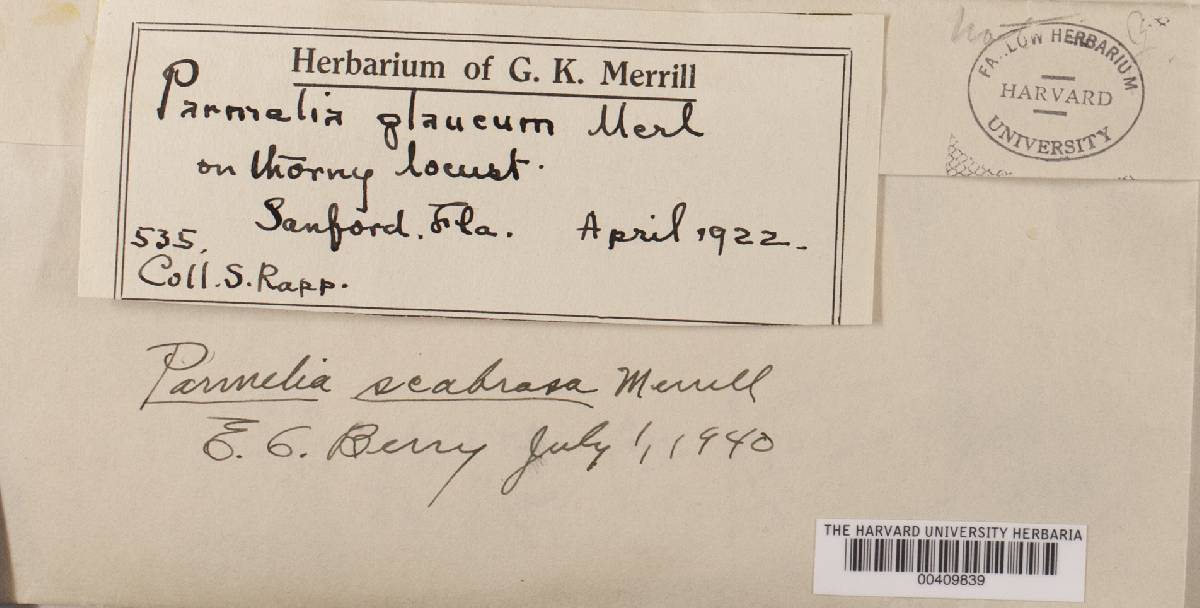 Herbarium of G. K. Merrill
Parmelia glaucum Merl
on thorny locust.
Sanford. Fla. April 1922.
535.
Coll. S. Rapp.
FARLOW HERBARIUM
HARVARD
UNIVERSITY
Parmelia scabrosa Merrill
E. C. Berry July 1, 1940
THE HARVARD UNIVERSITY HERBARIA
00409839